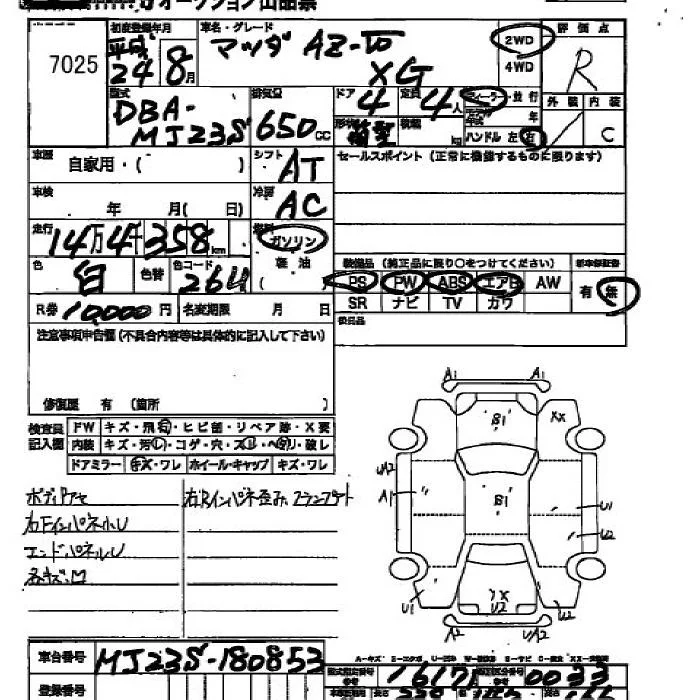 オークション出品票
7025
初度登録年月
平成
24年8月
車名・グレード
マツダ AZ-ワゴン
XG
2WD
4WD
評価点
R
外装 内装
C
型式
DBA-
MJ23S
排気量
650cc
ドア
4
定員
4人
形状
箱型
積載
kg
ディーラー・並行
年
ハンドル 左 右
車歴
自家用・( )
シフト
AT
セールスポイント (正常に機能するものに限ります)
車検
年 月( 日)
冷房
AC
走行
14万4千358km
燃料
ガソリン
軽油
( )
色
白
色替
色コード
26U
装備品 (純正品に限り○をつけてください)
新車保証書
PS PW ABS エアB AW
SR ナビ TV カワ
有・無
R券 10,000円
名変期限 月 日
後日品
注意事項申告欄(不具合内容等は具体的に記入して下さい)
修復歴 有 (箇所 )
検査員
記入欄
FW キズ・飛石・ヒビ部・リペア跡・X要
内装 キズ・汚レ・コゲ・穴・スレ・ヘタリ・破レ
ドアミラー キズ・ワレ ホイール・キャップ キズ・ワレ
右Fインパネ小U
エンドパネルU
右Rインパネ歪み
A1 A1
B1
XX
UA2
A1
B1
U1
U2
U1
X
U2
U2
A2
UA2
A-キズ
車台番号
MJ23S-180853
型式指定番号
16171
類別区分番号
0033
登録番号